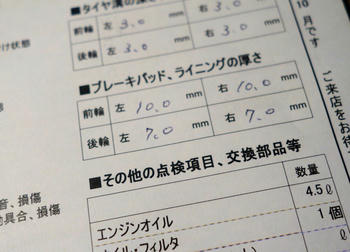 ■タイヤ溝の深さ
前輪 左 3.0 mm 右 3.0 mm
後輪 左 3.0 mm 右 3.0 mm
■ブレーキパッド、ライニングの厚さ
前輪 左 10.0 mm 右 10.0 mm
後輪 左 7.0 mm 右 7.0 mm
■その他の点検項目、交換部品等
数量
エンジンオイル 4.5ℓ
オイル・フィルタ 1個
ℓ
け状態
音、損傷
具合、損傷
10月です
ご来店をお待